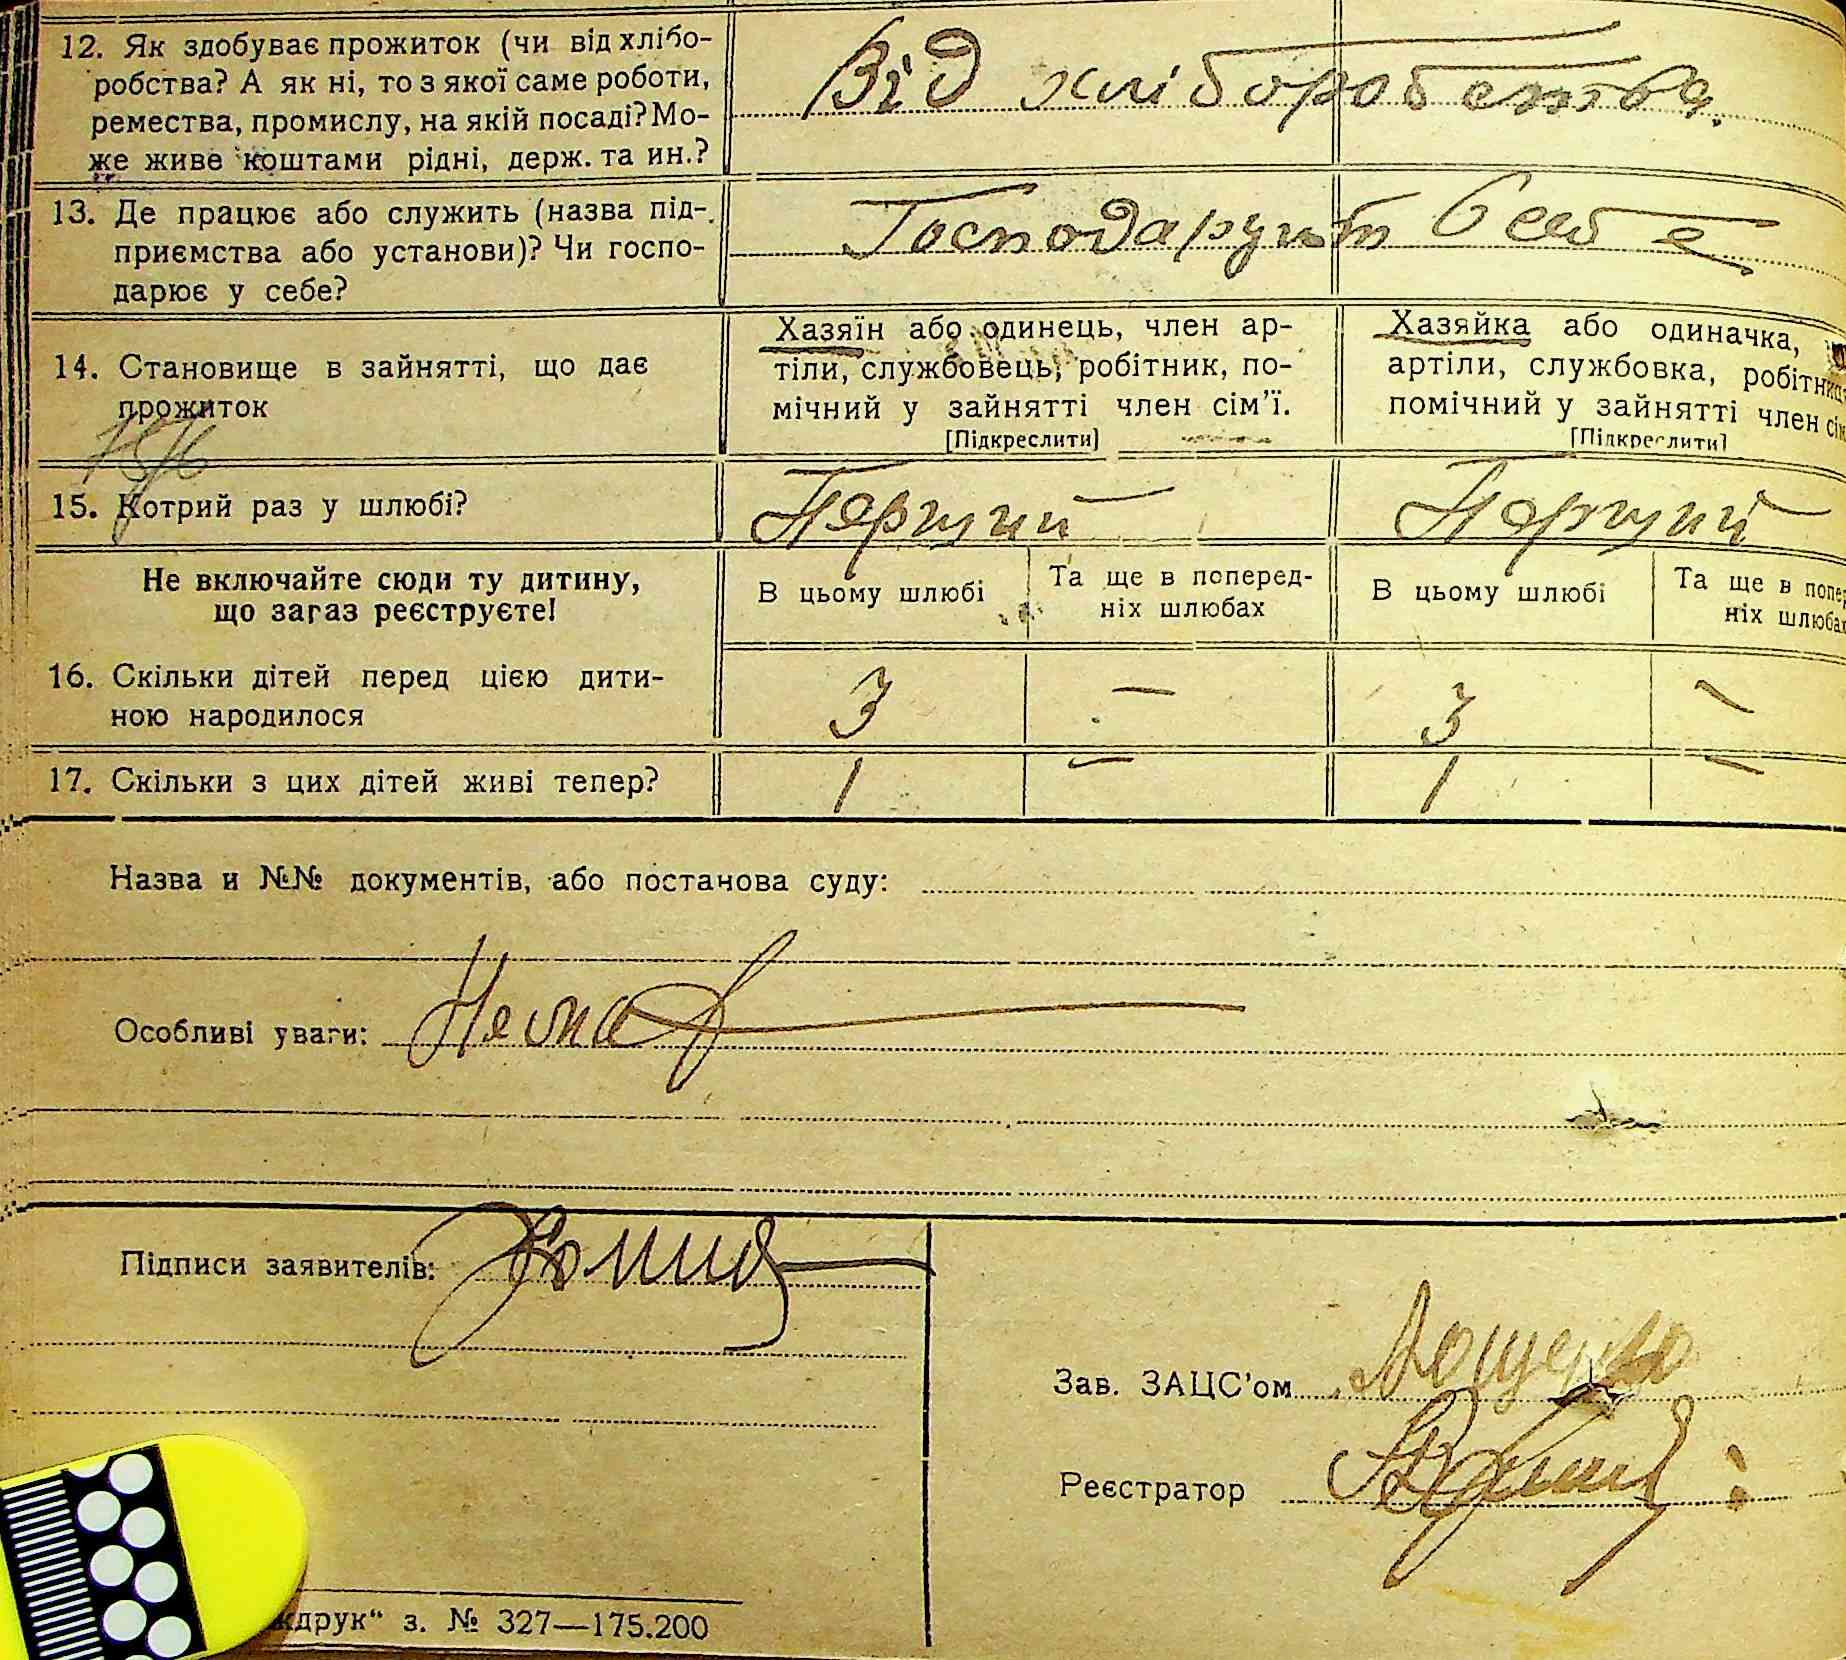 12. Як здобуває прожиток (чи від хлібо-
робства? А як ні, то з якої саме роботи,
ремества, промислу, на якій посаді? Мо-
же живе коштами рідні, держ. та ин.?
Від хліборобства.
13. Де працює або служить (назва під-
приємства або установи)? Чи госпо-
дарює у себе?
Господарують в себе
14. Становище в зайнятті, що дає
прожиток
Хазяїн або одинець, член ар-
тіли, службовець, робітник, по-
мічний у зайнятті член сім'ї.
[Підкреслити]
Хазяйка або одиначка,
артіли, службовка, робітниця
помічний у зайнятті член сім
[Підкреслити]
15. Котрий раз у шлюбі?
Перший
Перший
Не включайте сюди ту дитину,
що загаз реєструєте!
В цьому шлюбі
Та ще в поперед-
ніх шлюбах
В цьому шлюбі
Та ще в попер
ніх шлюбах
16. Скільки дітей перед цією дити-
ною народилося
3 — 3 —
17. Скільки з цих дітей живі тепер?
1 — 1 —
Назва и №№ документів, або постанова суду:
Особливі уваги: Нема
Підписи заявителів:
Зав. ЗАЦС'ом
Реєстратор
друк“ з. № 327—175.200